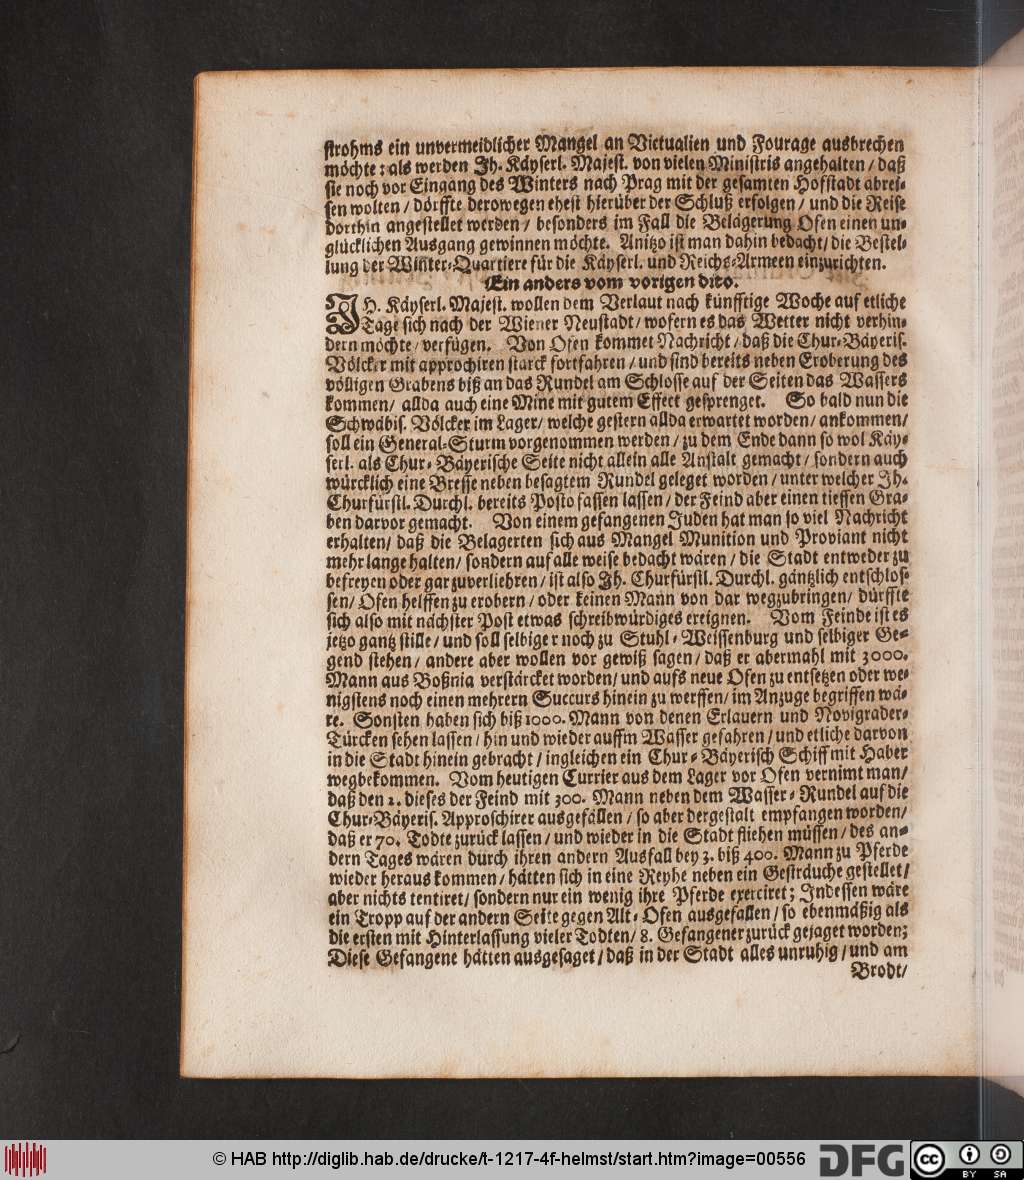 strohms ein unvermeidlicher Mangel an Victualien und Fourage ausbrechen
möchte: als werden Ih. Käyserl. Majest. von vielen Ministris angehalten / daß
sie noch vor Eingang des Winters nach Prag mit der gesamten Hofstadt abrei-
sen wolten / dörffte derowegen ehest hierüber der Schluß erfolgen / und die Reise
dorthin angestellet werden / besonders im Fall die Belägerung Ofen einen un-
glücklichen Ausgang gewinnen möchte. Anitzo ist man dahin bedacht / die Bestel-
lung der Winter-Quartiere für die Käyserl. und Reichs-Armeen einzurichten.
Ein anders vom vorigen dito.
IH. Käyserl. Majest. wollen dem Verlaut nach künfftige Woche auf etliche
Tage sich nach der Wiener Neustadt / wofern es das Wetter nicht verhin-
dern möchte / verfügen. Von Ofen kommet Nachricht / daß die Chur-Bäyeris.
Völcker mit approchiren starck fortfahren / und sind bereits neben Eroberung des
völligen Grabens biß an das Rundel am Schlosse auf der Seiten das Wassers
kommen / allda auch eine Mine mit gutem Effect gesprenget. So bald nun die
Schwäbis. Völcker im Lager / welche gestern allda erwartet worden / ankommen /
soll ein General-Sturm vorgenommen werden / zu dem Ende dann so wol Käy-
serl. als Chur-Bäyerische Seite nicht allein alle Anstalt gemacht / sondern auch
würcklich eine Bresse neben besagtem Rundel geleget worden / unter welcher Ih.
Churfürstl. Durchl. bereits Posto fassen lassen / der Feind aber einen tieffen Gra-
ben darvor gemacht. Von einem gefangenen Juden hat man so viel Nachricht
erhalten / daß die Belagerten sich aus Mangel Munition und Proviant nicht
mehr lange halten / sondern auf alle weise bedacht wären / die Stadt entweder zu
befreyen oder gar zuverliehren / ist also Ih. Churfürstl. Durchl. gäntzlich entschlos-
sen / Ofen helffen zu erobern / oder keinen Mann von dar wegzubringen / dürffte
sich also mit nächster Post etwas schreibwürdiges ereignen. Vom Feinde ist es
jetzo gantz stille / und soll selbiger noch zu Stuhl-Weissenburg und selbiger Ge-
gend stehen / andere aber wollen vor gewiß sagen / daß er abermahl mit 3000.
Mann aus Boßnia verstärcket worden / und aufs neue Ofen zu entsetzen oder we-
nigstens noch einen mehrern Succurs hinein zu werffen / im Anzuge begriffen wä-
re. Sonsten haben sich biß 1000. Mann von denen Erlauern und Novigrader-
Türcken sehen lassen / hin und wieder auffm Wasser gefahren / und etliche darvon
in die Stadt hinein gebracht / ingleichen ein Chur-Bäyerisch Schiff mit Haber
wegbekommen. Vom heutigen Currier aus dem Lager vor Ofen vernimt man /
daß den 2. dieses der Feind mit 300. Mann neben dem Wasser-Rundel auf die
Chur-Bäyeris. Approschirer ausgefallen / so aber dergestalt empfangen worden /
daß er 70. Todte zurück lassen / und wieder in die Stadt fliehen müssen / des an-
dern Tages wären durch ihren andern Ausfall bey 3. biß 400. Mann zu Pferde
wieder heraus kommen / hätten sich in eine Reyhe neben ein Gesträuche gestellet /
aber nichts tentiret / sondern nur ein wenig ihre Pferde exerciret; Indessen wäre
ein Tropp auf der andern Seite gegen Alt-Ofen ausgefallen / so ebenmäßig als
die ersten mit Hinterlassung vieler Todten / 8. Gefangener zurück gejaget worden;
Diese Gefangene hätten ausgesaget / daß in der Stadt alles unruhig / und am
Brodt /
© HAB http://diglib.hab.de/drucke/t-1217-4f-helmst/start.htm?image=00556
DFG
cc BY SA